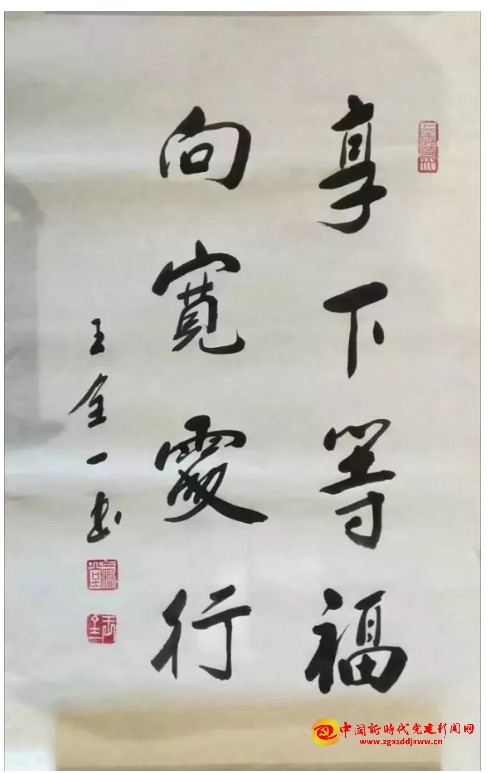 享下等福
向寬處行
王金一书
中国新时代党建新闻网
www.zgxsddjxww.cn